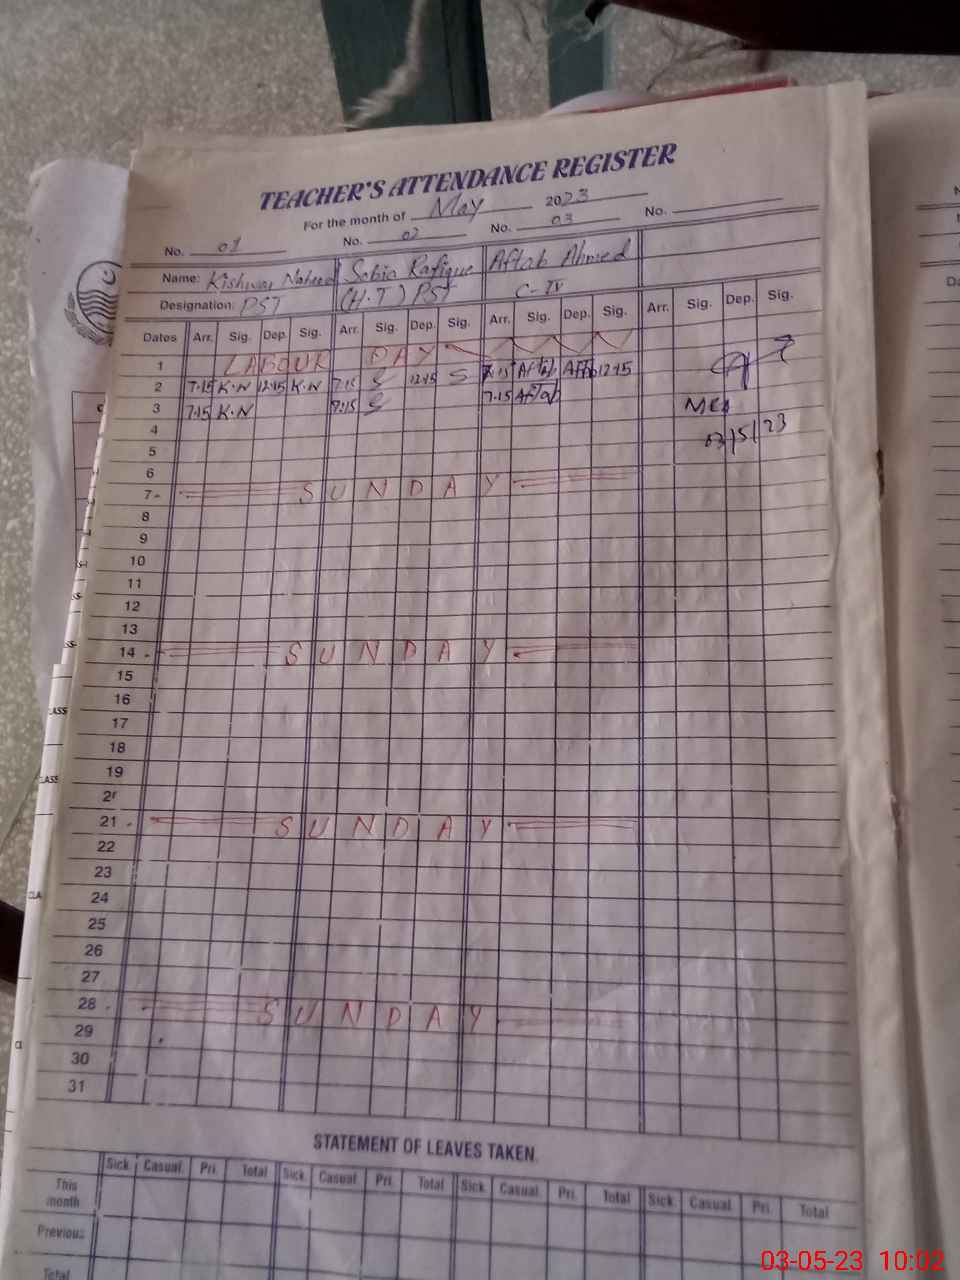 TEACHER'S ATTENDANCE REGISTER
For the month of May 2023
No. 01 No. 02 No. 03 No.
Name: Kishwar Naheed Sabia Rafique Aftab Ahmed
Designation: PST (H.T) PST C-IV
Dates Arr. Sig. Dep. Sig. Arr. Sig. Dep. Sig. Arr. Sig. Dep. Sig. Arr. Sig. Dep. Sig.
1 LABOUR DAY
2 7.15 K.N 12.15 K.N 7.15 S 12.15 S 7.15 Aftab Aftab 12.15
3 7.15 K.N 7.15 S 7.15 Aftab
MEA
4
03/5/23
5
6
7 - SUNDAY
8
9
10
11
12
13
14 - SUNDAY
15
16
17
18
19
2
21 - SUNDAY
22
23
24
25
26
27
28 - SUNDAY
29
30
31
STATEMENT OF LEAVES TAKEN
Sick Casual Pri. Total Sick Casual Pri. Total Sick Casual Pri. Total Sick Casual Pri. Total
This month
Previous
Total
CLASS
CLASS
03-05-23 10:02